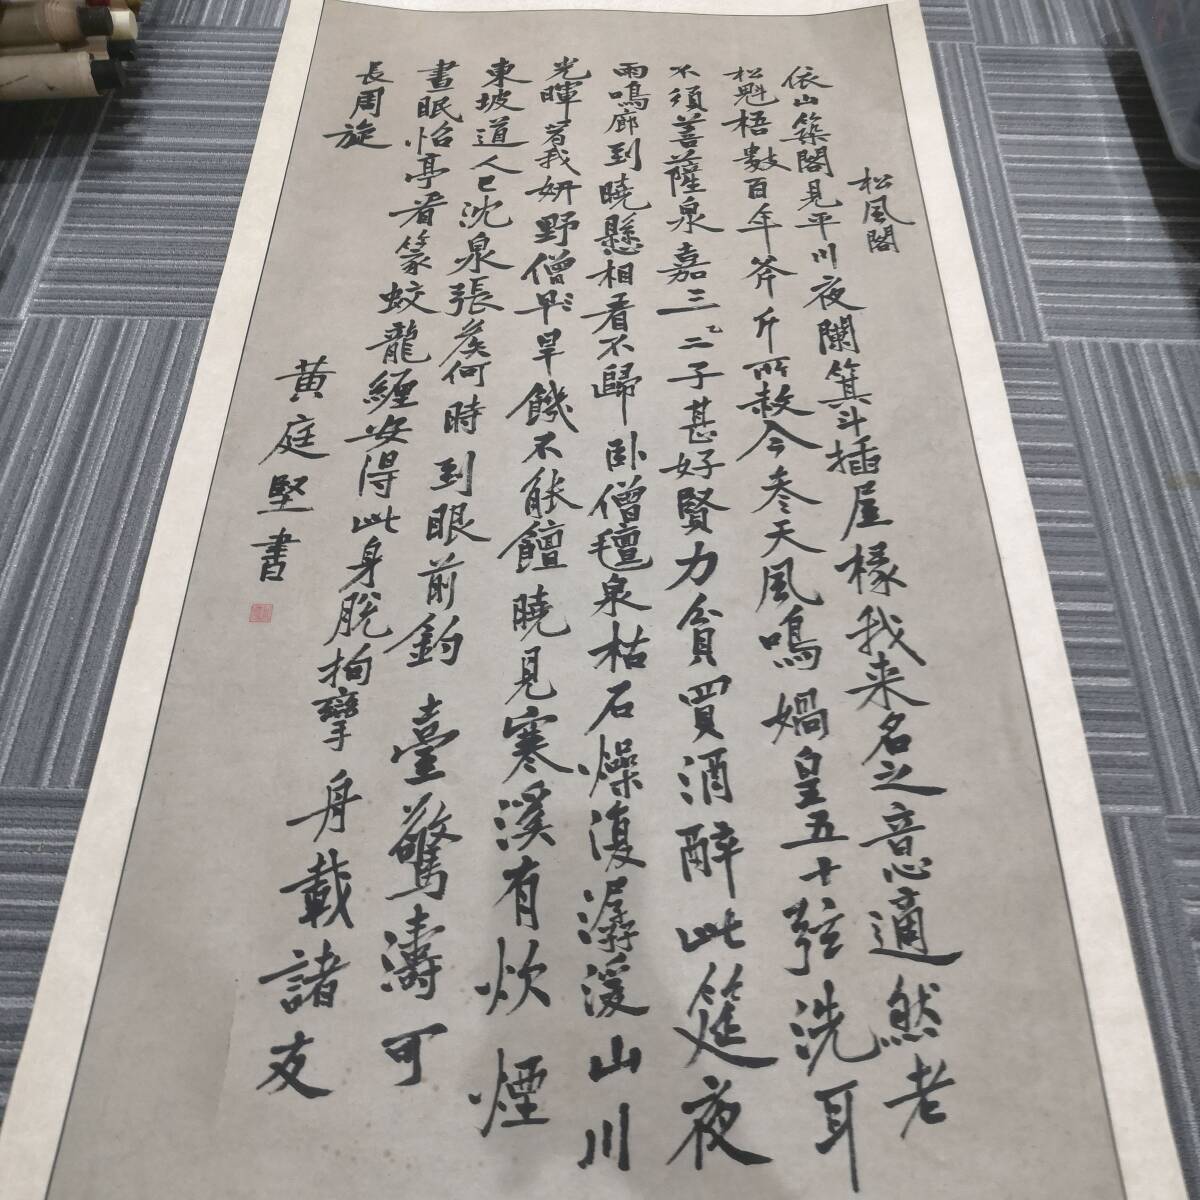 松風閣
依山築閣見平川夜闌箕斗插屋椽我来名之意適然老
松魁梧數百年斧斤所赦今参天風鳴媧皇五十弦洗耳
不須菩薩泉嘉三二子甚好賢力貧買酒醉此筵夜
雨鳴廊到曉懸相看不歸卧僧氊泉枯石燥復潺湲山川
光暉為我妍野僧早旱饑不能饘曉見寒溪有炊煙
東坡道人已沈泉張侯何時到眼前釣臺驚濤可
晝眠怡亭看篆蛟龍纏安得此身脫拘攣舟載諸友
長周旋
黃庭堅書